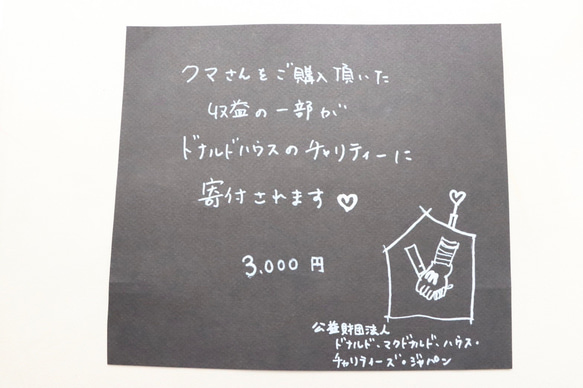 クマさんをご購入頂いた
収益の一部が
ドナルドハウスのチャリティーに
寄付されます♡
3.000 円
公益財団法人
ドナルド・マクドナルド・ハウス・
チャリティーズ・ジャパン